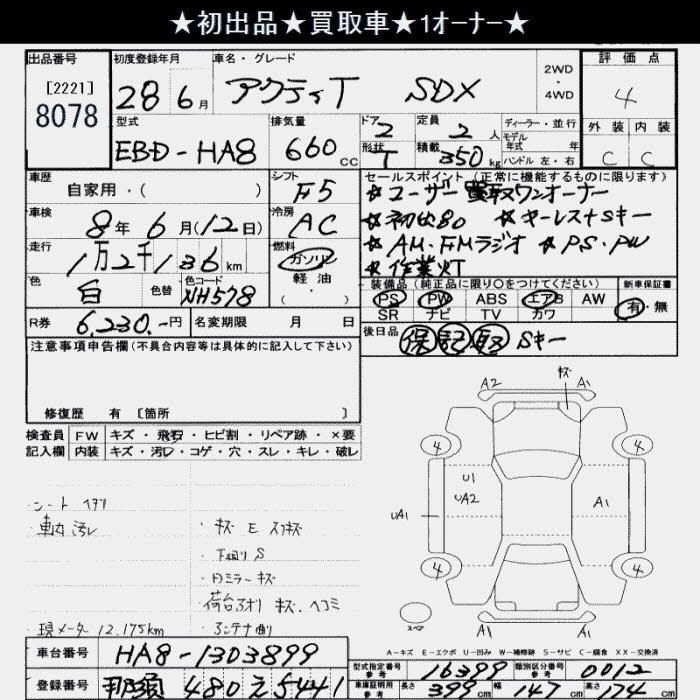 ★初出品★買取車★1オーナー★
出品番号
[2221]
8078
初度登録年月
28 6月
車名・グレード
アクティT SDX
2WD
・
4WD
評価点
4
外装 内装
C C
型式
EBD-HA8
排気量
660 cc
ドア 2
形状 T
定員 2人
積載 350 kg
ディーラー・並行
モデル
年式 年
ハンドル 左・右
車歴
自家用・( )
シフト
F5
車検
8年6月(12日)
冷房
AC
走行
1万2千136km
燃料
ガソリン
軽油
・
( )
色
白
色替
色コード
NH578
セールスポイント (正常に機能するものに限ります)
★ユーザー買取ワンオーナー
★初出品 ★キーレス+Sキー
★AM・FMラジオ ★PS・PW
★作業灯
装備品 (純正品に限り○をつけてください)
PS PW ABS エアB AW
SR ナビ TV カワ
新車保証書
有・無
R券 6,230.-円
名変期限 月 日
後日品 保 記 取 Sキー
注意事項申告欄 (不具合内容等は具体的に記入して下さい)
修復歴 有 [箇所 ]
検査員
記入欄
FW キズ・飛石・ヒビ割・リペア跡・×要
内装 キズ・汚れ・コゲ・穴・スレ・キレ・破レ
・シート ヘタリ
・車内 汚レ
・キズ E スリキズ
・下廻り S
・Rミラー キズ
・荷台アオリ キズ、ヘコミ
・アンテナ曲り
・現メーター 12,175km
キズ
A2 A1
4 4
U1
UA2
UA1
A1
4 4
スペア
A1 A1
A-キズ E-エクボ U-凹み W-補修跡 S-サビ C-腐食 XX-交換済
車台番号 HA8-1303899
登録番号 那須 480 え 5441
型式指定番号
参考
16399
類別区分番号
参考
0012
車庫証明用
参考
長さ 399cm 幅 147cm 高さ 174cm